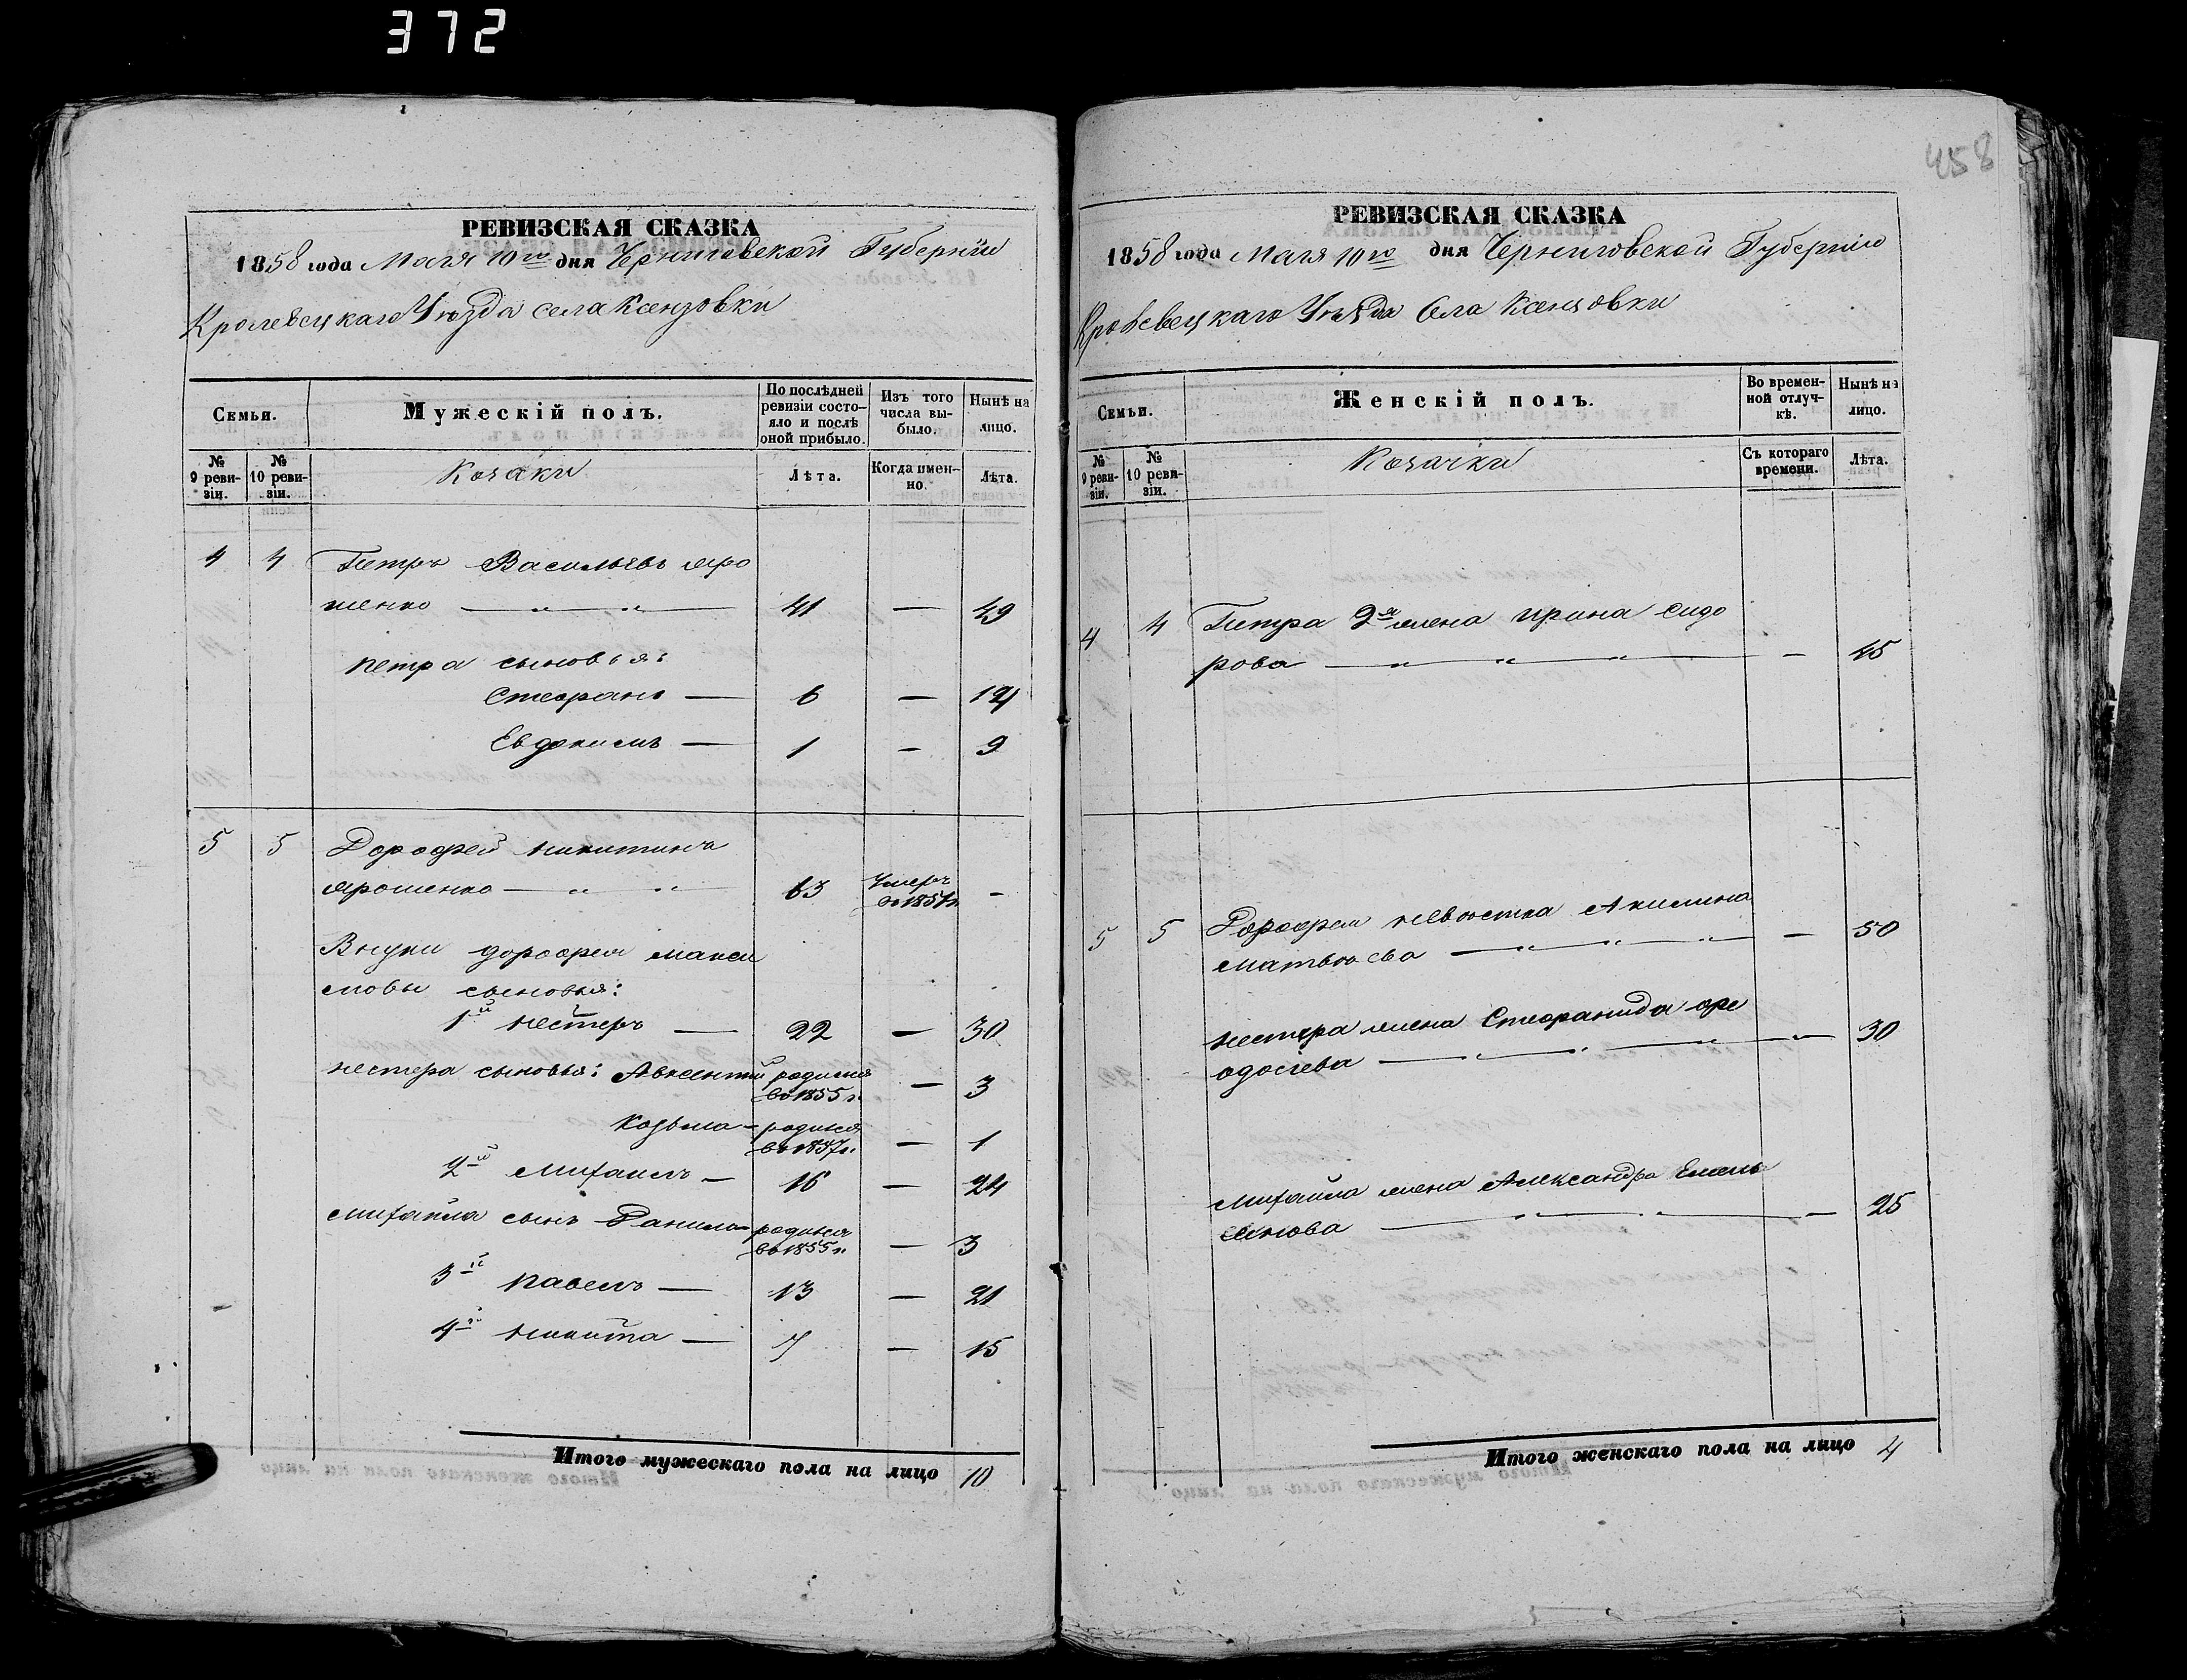 372
458
РЕВИЗСКАЯ СКАЗКА
1858 года Мая 10го дня Черниговской Губерніи
Кролевецкаго Уѣзда села Ксензовки
Семьи.
Мужескій полъ.
По послѣдней ревизіи состояло и послѣ оной прибыло.
Изъ того числа выбыло.
Нынѣ на лицо.
№ 9 ревизіи.
№ 10 ревизіи.
Козаки
Лѣта.
Когда именно.
Лѣта.
4 4 Петръ Васильевъ Яро
шенко — „ — „ — 41 — 49
Петра сыновья:
Стефанъ — 6 — 14
Евдокимъ — 1 — 9
5 5 Дорофей Никитинъ
Ярошенко — „ — „ — 63 Умеръ въ 1851 г. —
Внуки Дорофея Макси
мовы сыновья:
1й Нестеръ — 22 — 30
Нестера сыновья: Авксентій родился въ 1855 г. — 3
Козьма — родился въ 1857 г. — 1
2й Михаилъ — 16 — 24
Михайла сынъ Данило — родился въ 1855 г. — 3
3й Павелъ — 13 — 21
4й Никита — 7 — 15
Итого мужескаго пола на лицо 10
РЕВИЗСКАЯ СКАЗКА
1858 года Мая 10го дня Черниговской Губерніи
Кролевецкаго Уѣзда Села Ксензовки
Семьи.
Женскій полъ.
Во временной отлучкѣ.
Нынѣ на лицо.
№ 9 ревизіи.
№ 10 ревизіи.
Козачки
Съ котораго времени.
Лѣта.
4 4 Петра 2я жена Ирина Сидо
рова — „ — „ — „ — — 45
5 5 Дорофея невѣстка Акилина
Матвѣева — „ — „ — „ — — 50
Нестера жена Стефанида Фе
одосіева — „ — „ — „ — — 30
Михайла жена Александра Емель
янова — „ — „ — „ — — 25
Итого женскаго пола на лицо 4